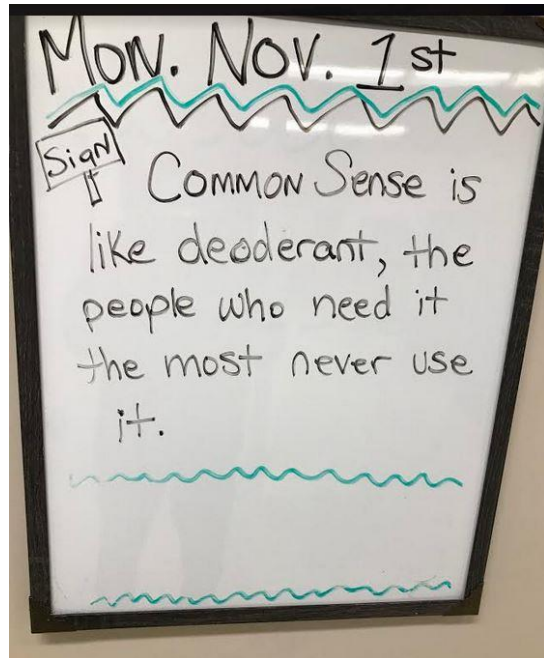 Mon. Nov. 1st
Sign
Common Sense is
like deoderant, the
people who need it
the most never use
it.